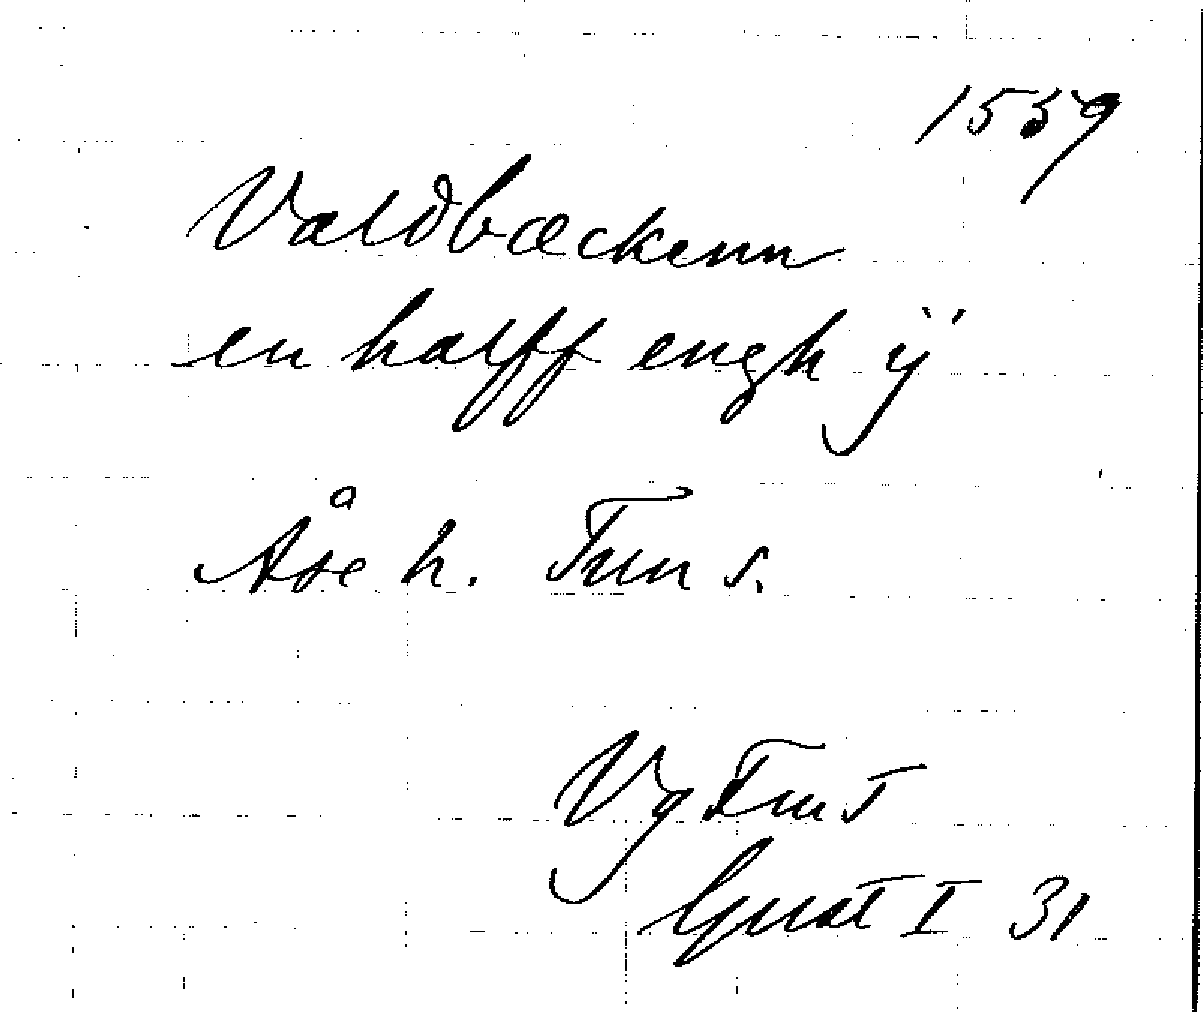 1559
Valdbæckenn
en halff engh ÿ
Åse h. Tun s.
Vg Tun 5
Gust I 31